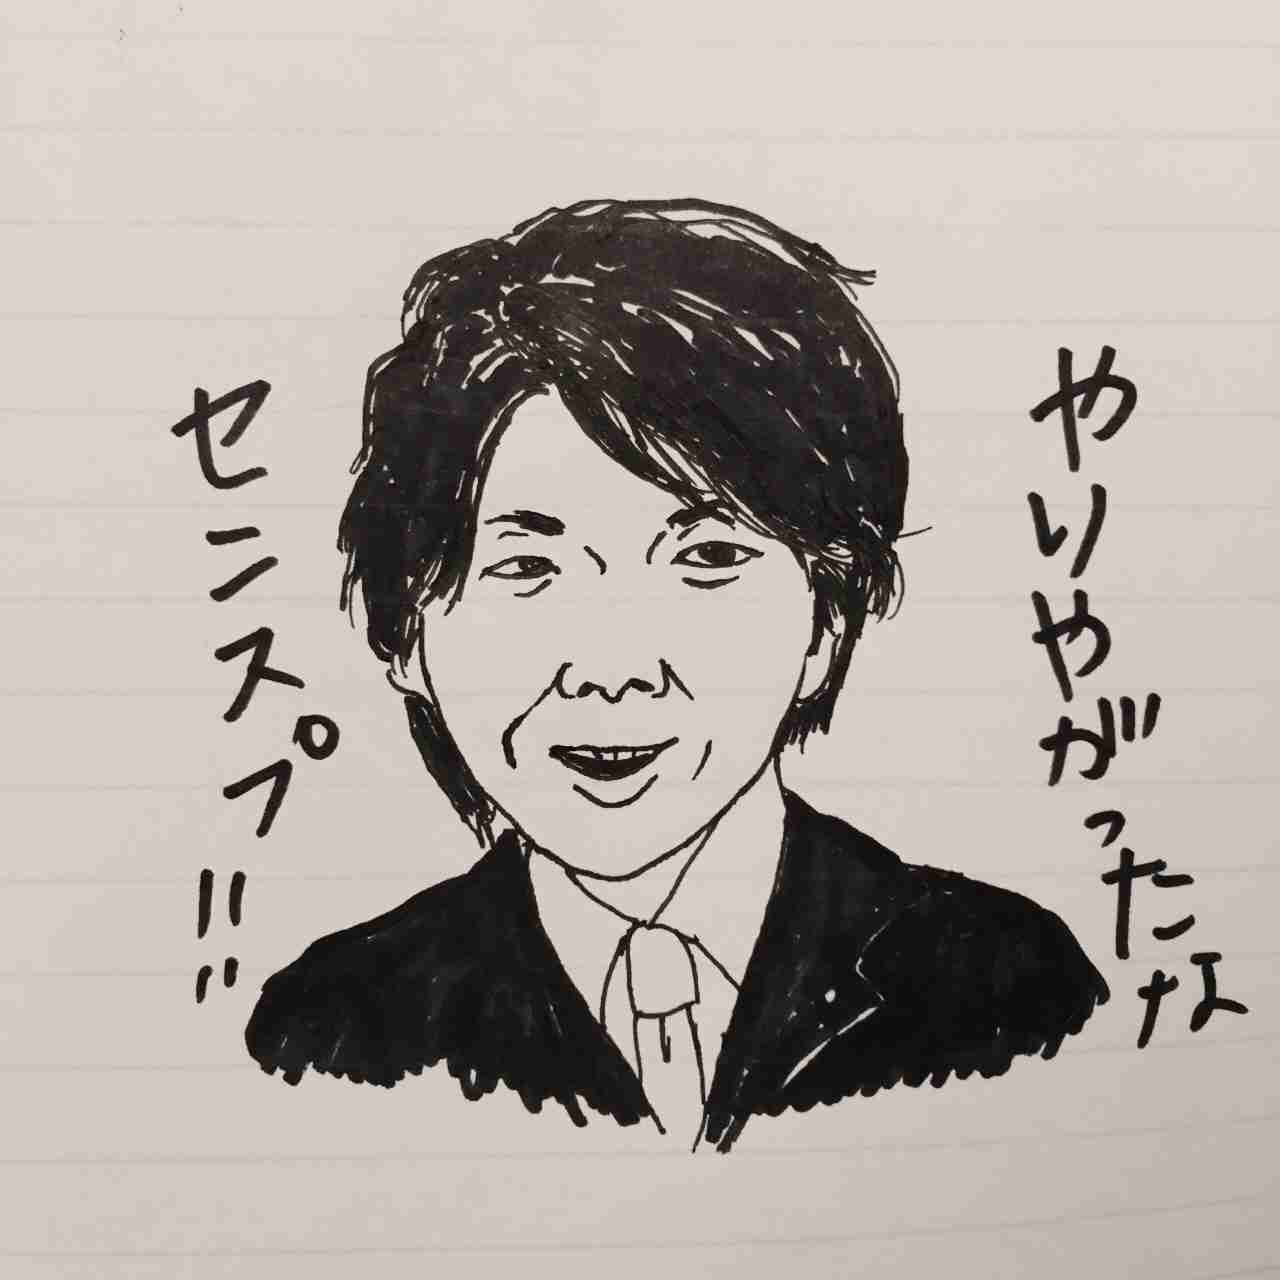 やりやがったな
センスプ!!